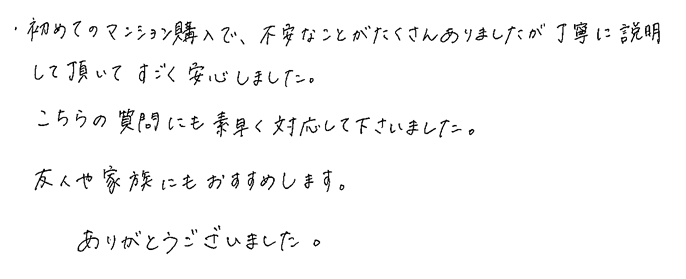 ・初めてのマンション購入で、不安なことがたくさんありましたが丁寧に説明
して頂いてすごく安心しました。
こちらの質問にも素早く対応して下さいました。
友人や家族にもおすすめします。
ありがとうございました。